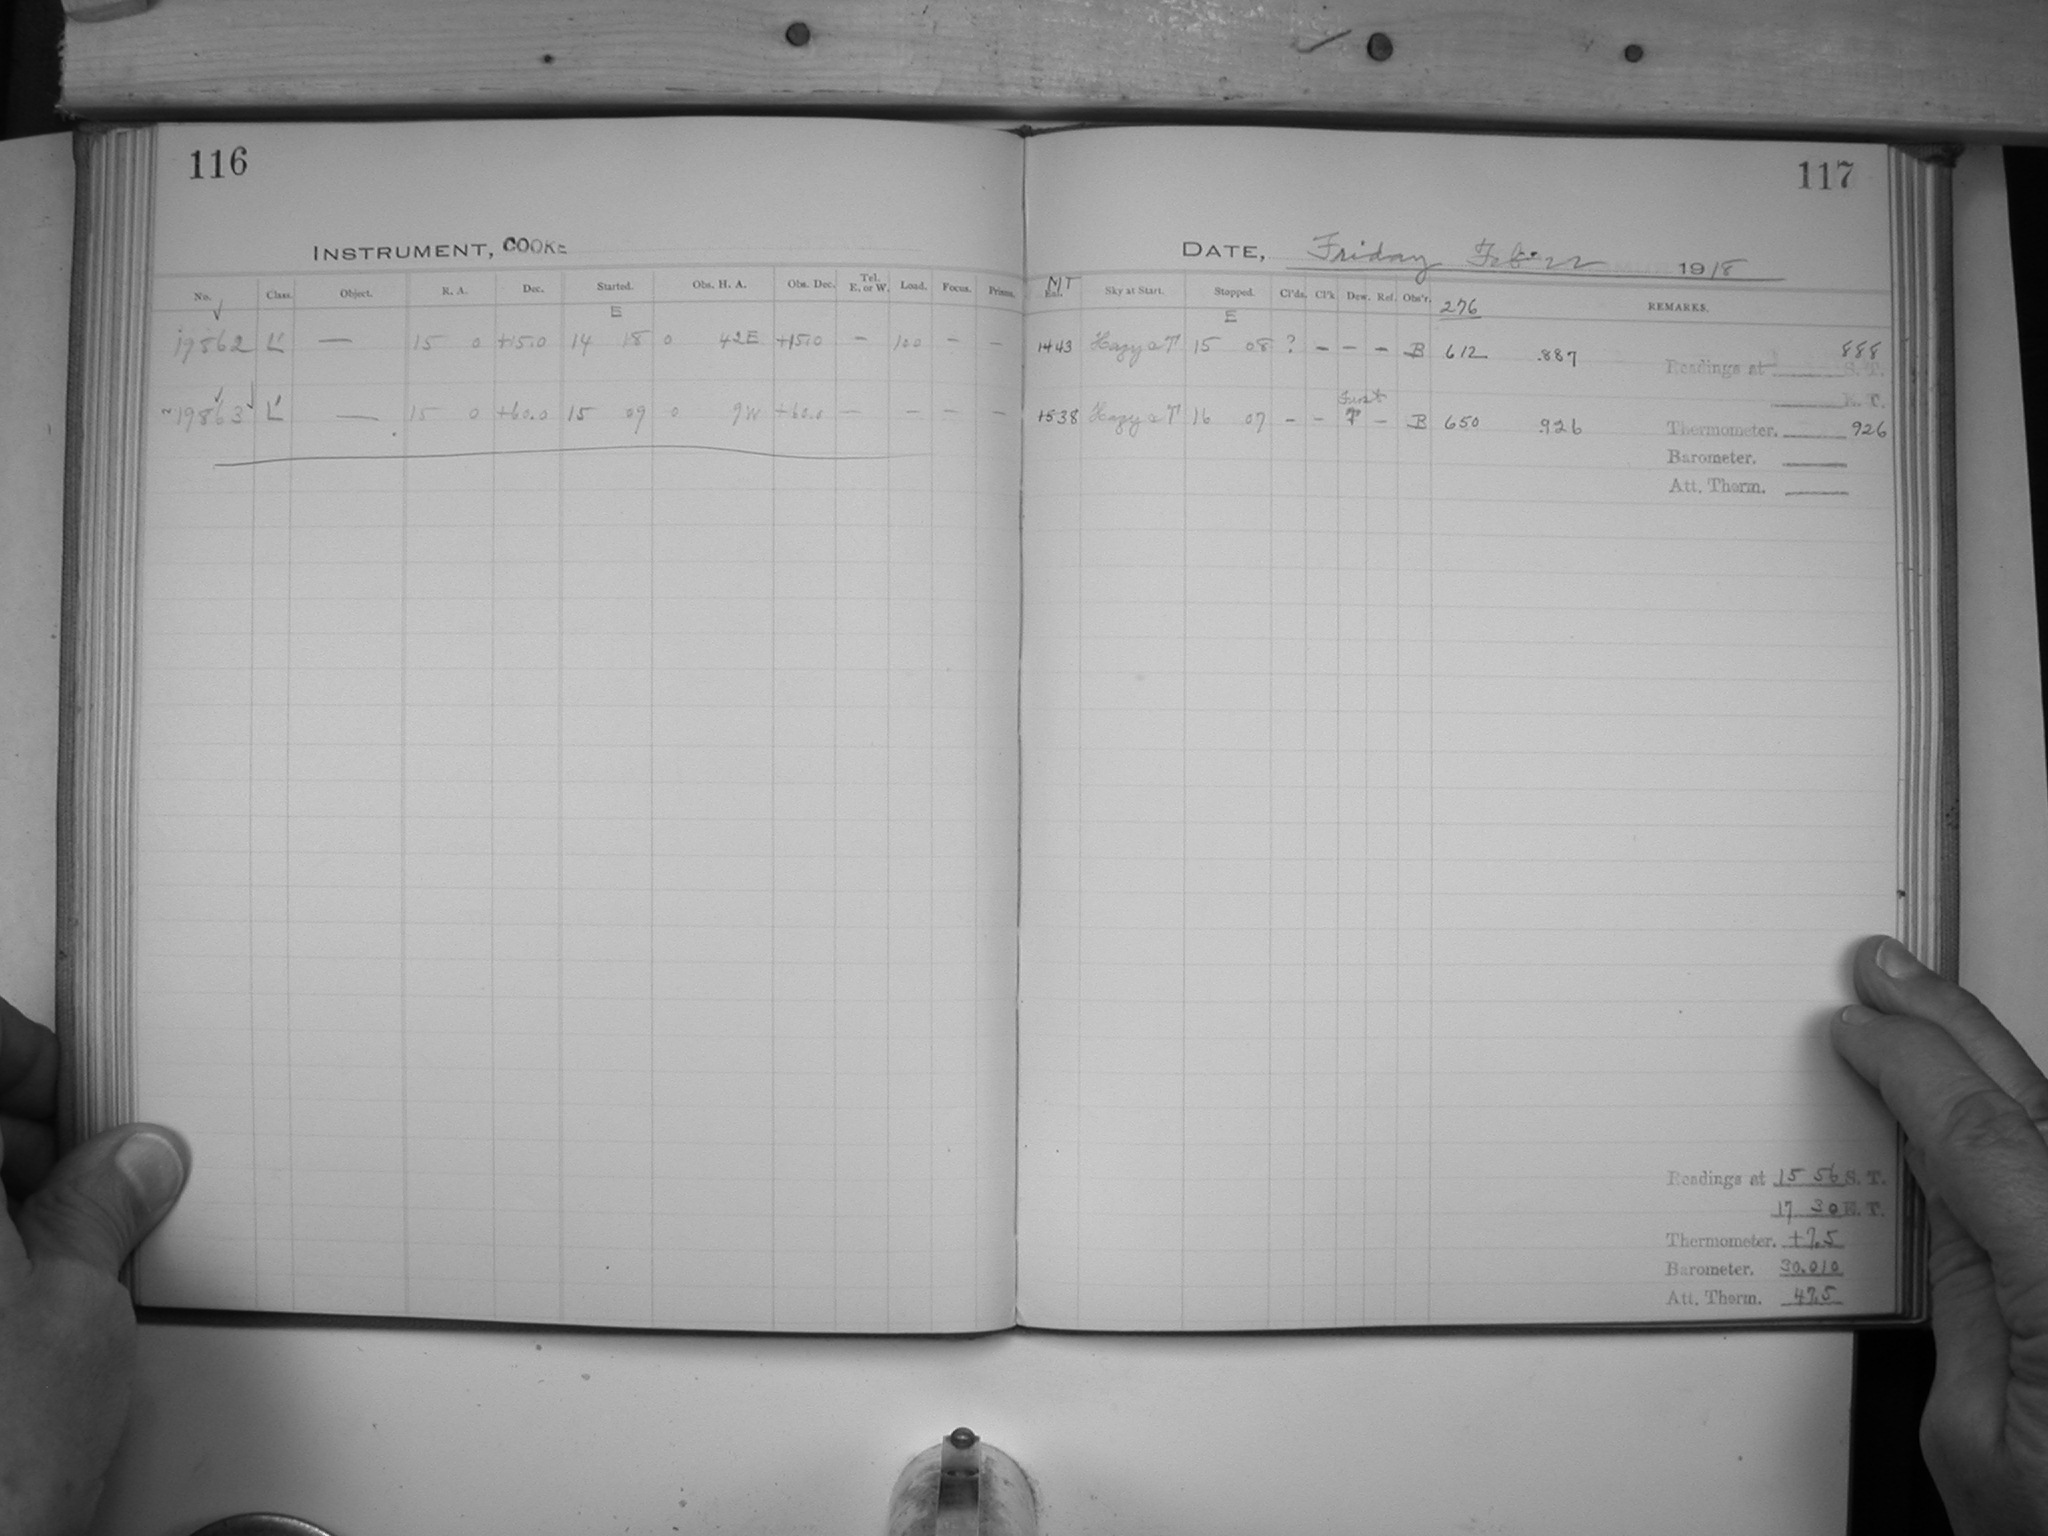 116
INSTRUMENT, COOKE
No. Class. Object. R. A. Dec. Started. Obs. H. A. Obs. Dec. Tel. E. or W. Load. Focus. Prisms.
E
19862 L' — 15 0 +15.0 14 18 0 42E +15.0 — 100 — —
19863 L' — 15 0 +60.0 15 09 0 9W +60.0 — — — —
117
DATE, Friday Feb. 22 1918
MT Sky at Start. Stopped. Cl'ds. Cl'k Dew. Ref. Obs'r. 276 REMARKS.
E
1443 Hazy & 15 08 ? — — — B 612 .887 888
Readings at S. T.
E. T.
Frost
1538 Hazy & 16 07 — — ? — B 650 .926
Thermometer. 926
Barometer.
Att. Therm.
Readings at 15 56 S. T.
17 30 E. T.
Thermometer. +7.5
Barometer. 30.010
Att. Therm. 47.5